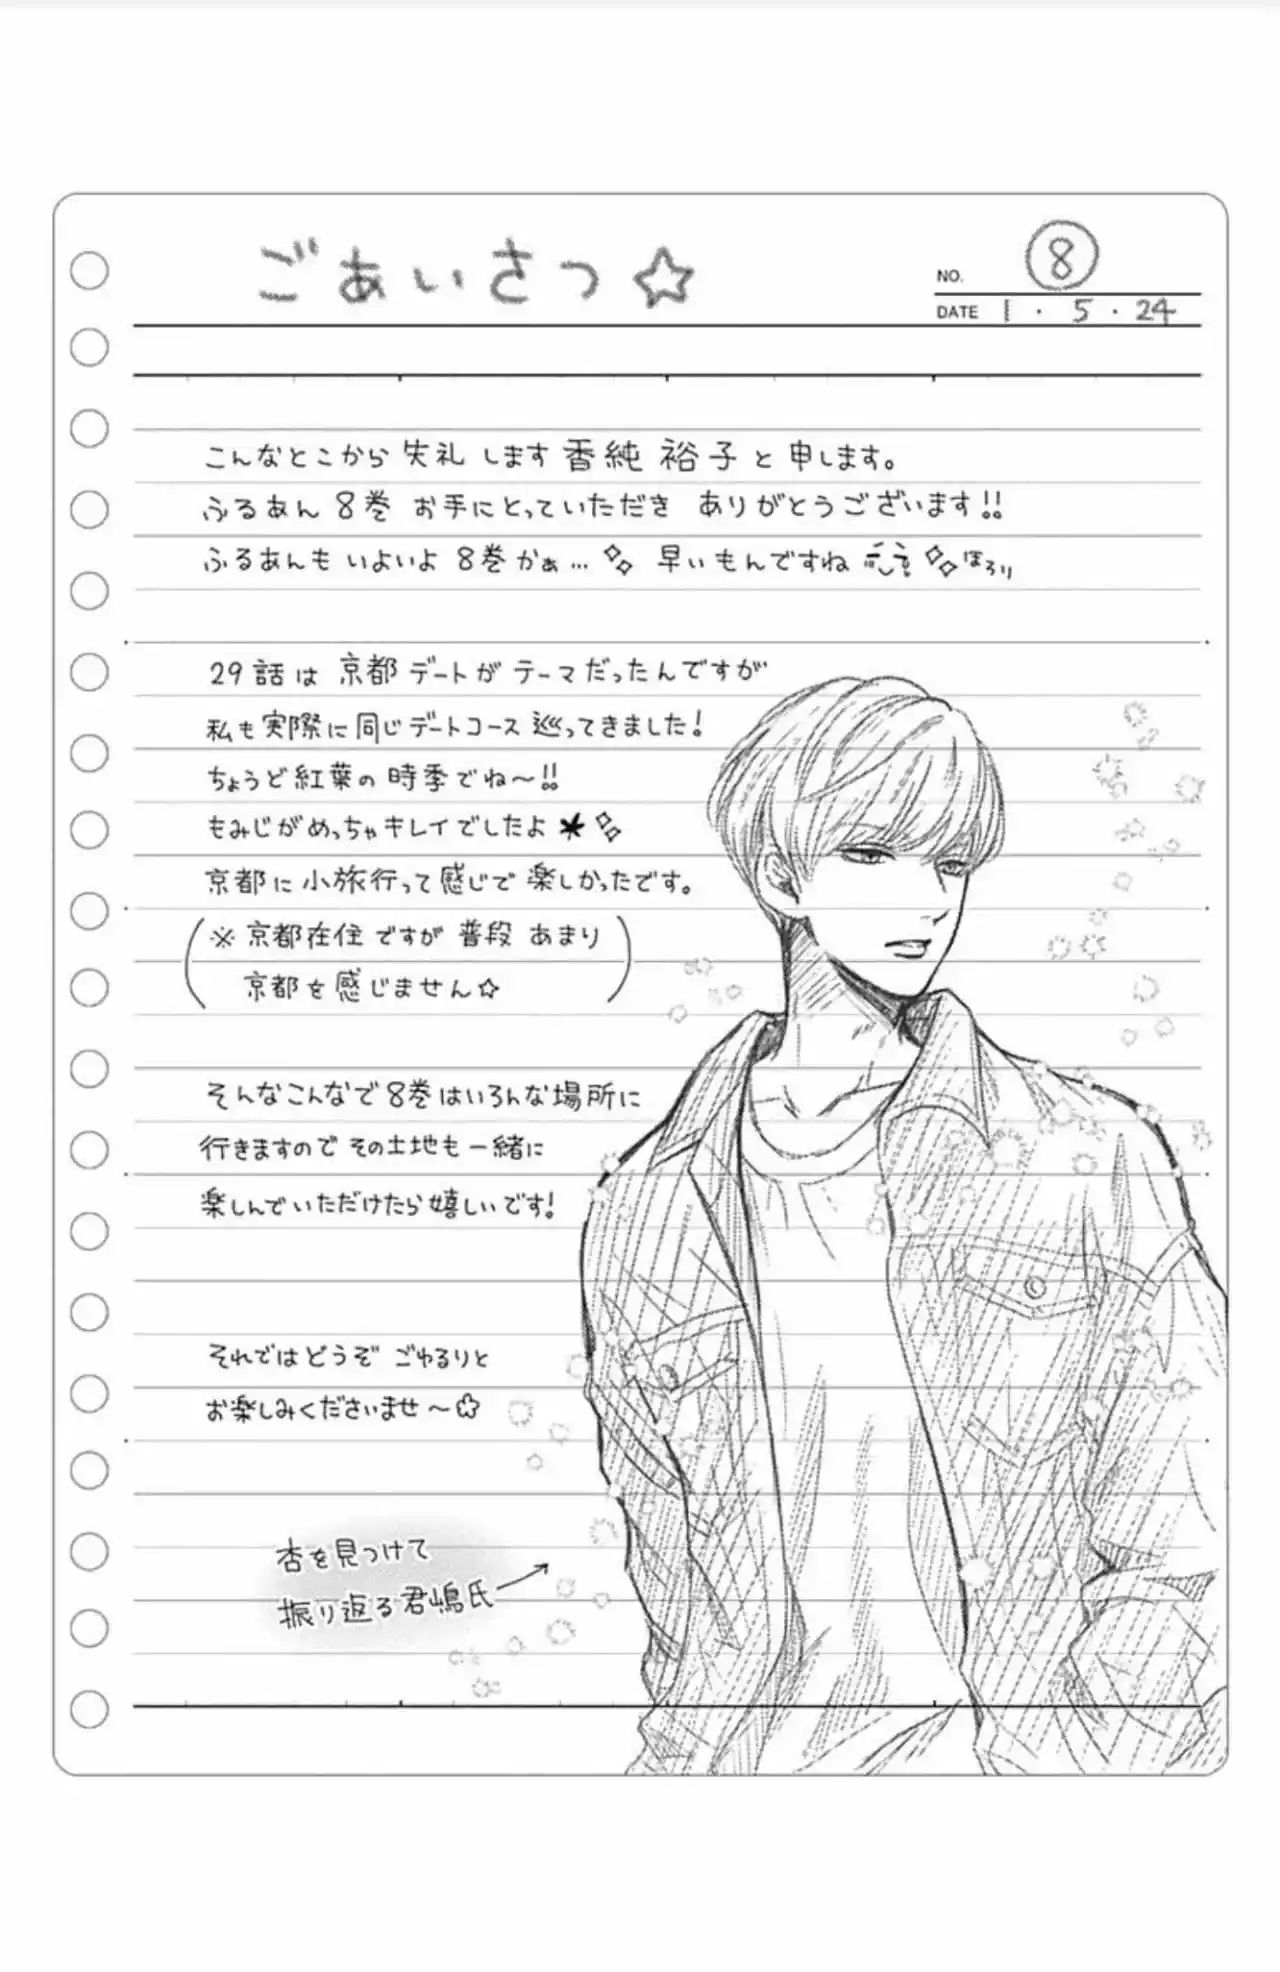 ごあいさつ☆
NO. ⑧
DATE 1・5・24
こんなとこから 失礼 します 香純 裕子 と 申します。
ふるあん 8巻 お手にとっていただき ありがとうございます!!
ふるあんも いよいよ 8巻かぁ… 早いもんですね ほろり
29話は 京都デートが テーマだったんですが
私も実際に同じデートコース 巡ってきました!
ちょうど紅葉の時季でね〜!!
もみじがめっちゃキレイでしたよ
京都に小旅行って感じで楽しかったです。
(※京都在住ですが 普段 あまり
京都を感じません☆)
そんなこんなで8巻はいろんな場所に
行きますので その土地も一緒に
楽しんでいただけたら嬉しいです!
それではどうぞ ごゆるりと
お楽しみくださいませ〜
杏を見つけて
振り返る君嶋氏→